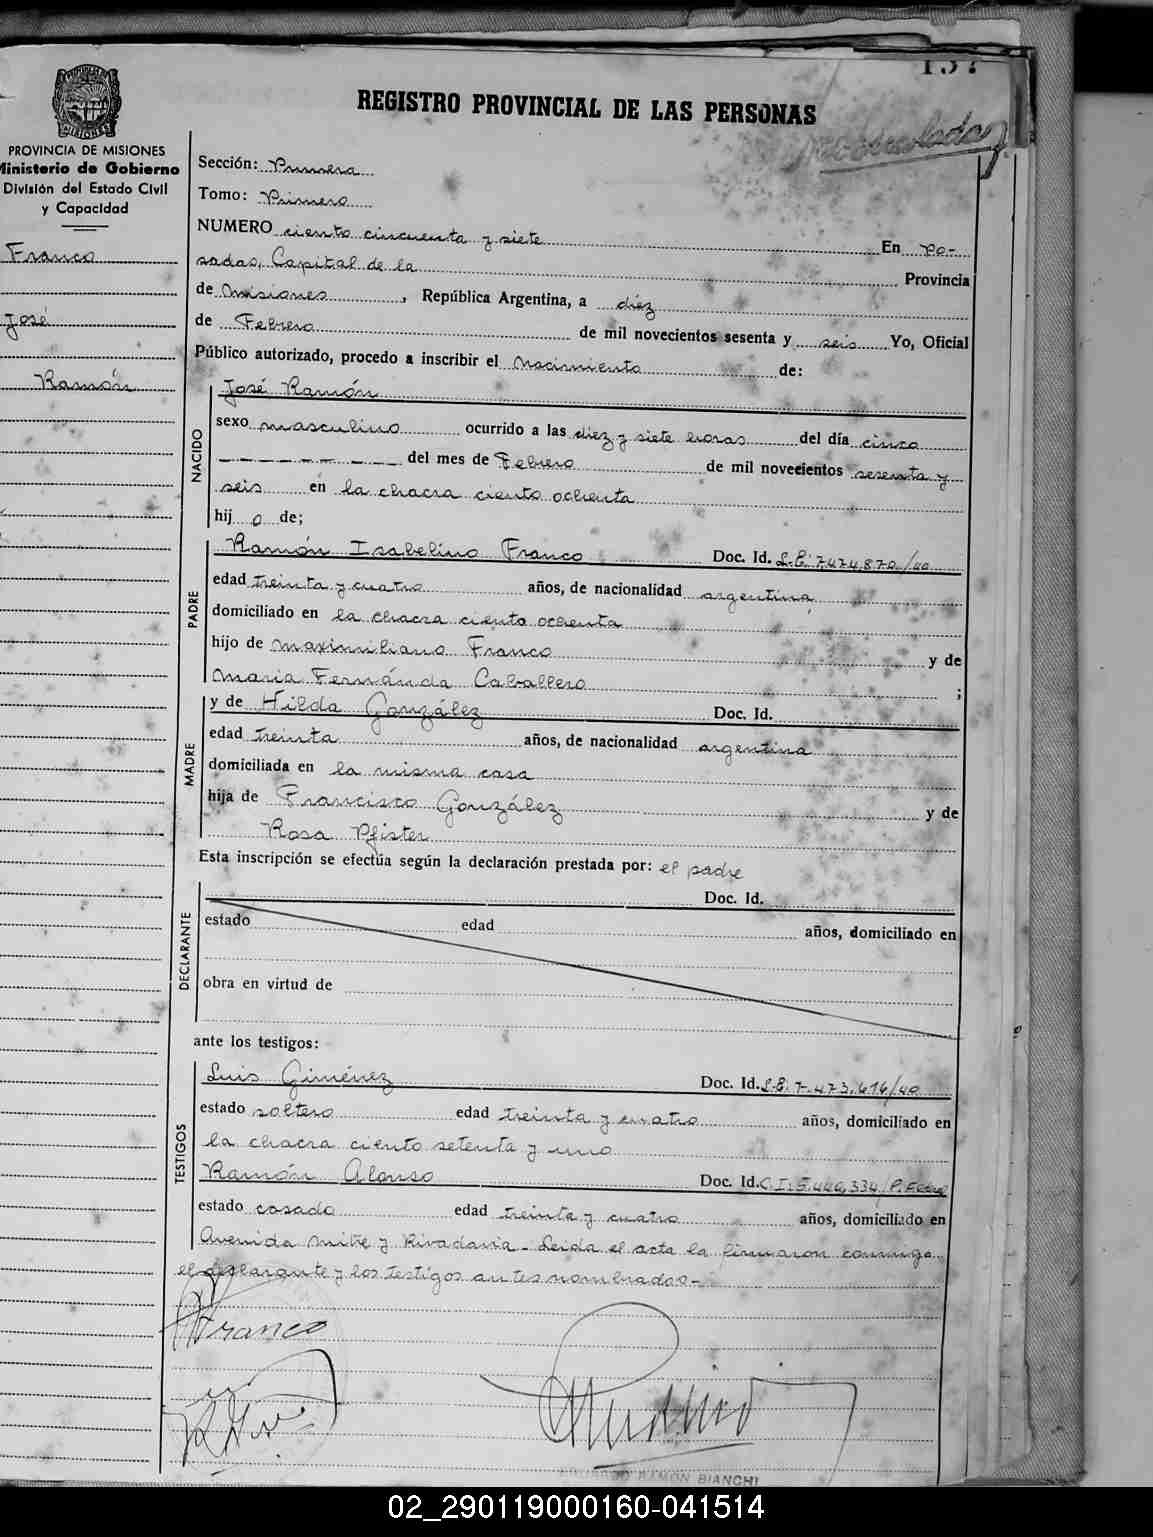 157
REGISTRO PROVINCIAL DE LAS PERSONAS
PROVINCIA DE MISIONES
Ministerio de Gobierno
División del Estado Civil
y Capacidad
Franco
José
Ramón
Sección: Primera
Tomo: Primero
NUMERO ciento cincuenta y siete En Po-
sadas, Capital de la Provincia
de Misiones, República Argentina, a diez
de Febrero de mil novecientos sesenta y seis Yo, Oficial
Público autorizado, procedo a inscribir el Nacimiento de:
José Ramón
NACIDO
sexo masculino ocurrido a las diez y siete horas del día cinco
del mes de Febrero de mil novecientos sesenta y
seis en la chacra ciento ochenta
hijo de;
PADRE
Ramón Isabelino Franco Doc. Id. L.E. 7.474.870/40
edad treinta y cuatro años, de nacionalidad argentina,
domiciliado en la chacra ciento ochenta
hijo de Maximiliano Franco y de
Maria Fernánda Caballero ;
MADRE
y de Hilda González Doc. Id.
edad treinta años, de nacionalidad argentina
domiciliada en la misma casa
hija de Francisco González y de
Rosa Pfister
Esta inscripción se efectúa según la declaración prestada por: el padre
DECLARANTE
Doc. Id.
estado edad años, domiciliado en
obra en virtud de
ante los testigos:
TESTIGOS
Luis Giménez Doc. Id. L.E. 7.473.616/40
estado soltero edad treinta y cuatro años, domiciliado en
la chacra ciento setenta y uno
Ramón Alonso Doc. Id. C.I. 5.440.334/P.
estado casado edad treinta y cuatro años, domiciliado en
Avenida Mitre y Rivadavia - Leida el acta la firmaron conmigo
el declarante y los testigos antes nombrados-
Franco
EDUARDO RAMÓN BIANCHI
02_290119000160-041514